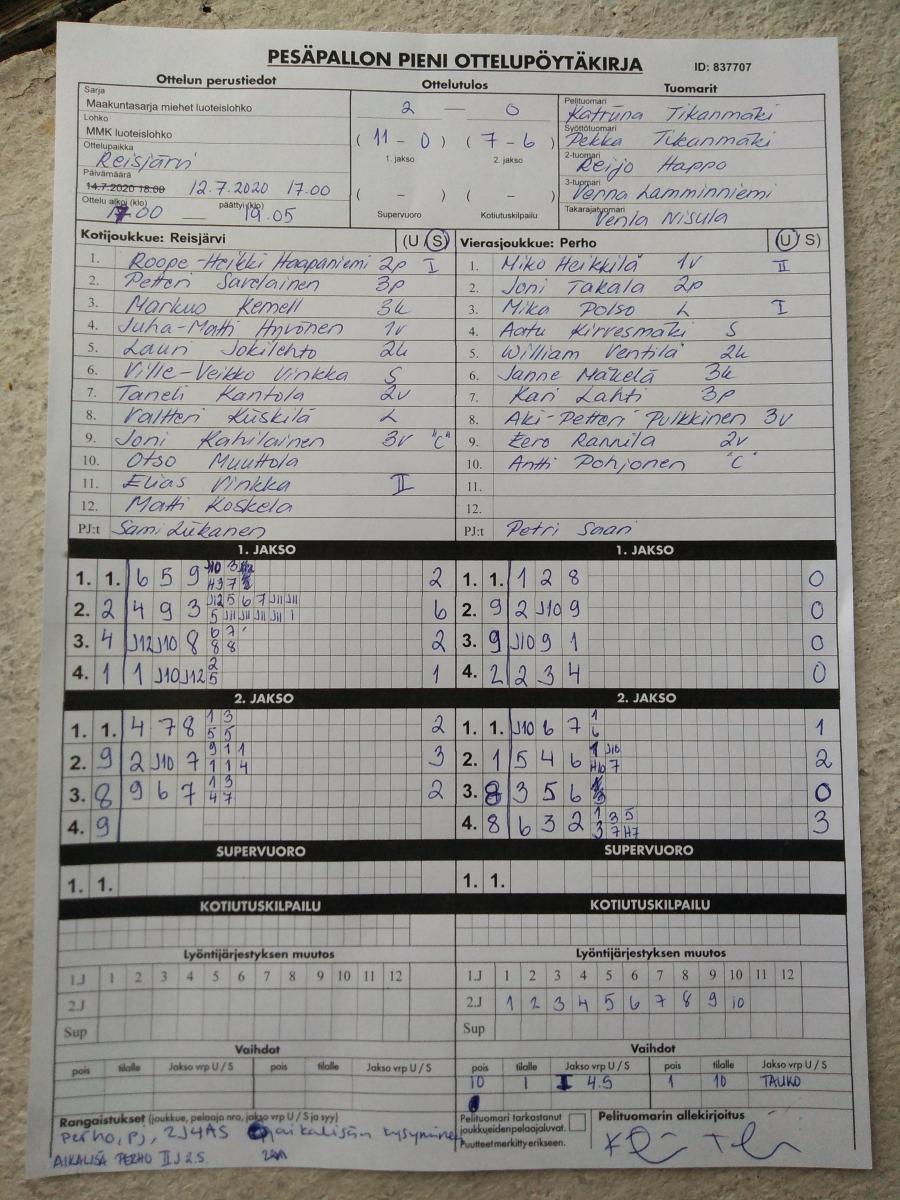 PESÄPALLON PIENI OTTELUPÖYTÄKIRJA ID: 837707
Ottelun perustiedot Ottelutulos Tuomarit
Sarja
Maakuntasarja miehet luoteislohko
Lohko
MMK luoteislohko
Ottelupaikka
Reisjärvi
Päivämäärä
14.7.2020 18:00 12.7.2020 17.00
Ottelu alkoi (klo) päättyi (klo)
17.00 — 19.05
2 — 0
( 11 - 0 ) ( 7 - 6 )
1. jakso 2. jakso
( - ) ( - )
Supervuoro Kotiutuskilpailu
Pelituomari
Katriina Tikanmäki
Syöttötuomari
Pekka Tikanmäki
2-tuomari
Reijo Happo
3-tuomari
Venna Lamminniemi
Takarajatuomari
Venla Nisula
Kotijoukkue: Reisjärvi (U S)
1. Roope-Heikki Haapaniemi 2p I
2. Petteri Savelainen 3p
3. Markus Kemell 3k
4. Juha-Matti Hyvönen 1v
5. Lauri Jokilehto 2k
6. Ville-Veikko Vinkka S
7. Taneli Kantola 2v
8. Valtteri Kiiskilä L
9. Joni Kahilainen 3v "C"
10. Otso Muuttola
11. Elias Vinkka II
12. Matti Koskela
PJ:t Sami Liikanen
Vierasjoukkue: Perho (U S)
1. Miko Heikkilä 1v II
2. Joni Takala 2p
3. Mika Polso L I
4. Aatu Kirvesmäki S
5. William Ventilä 2k
6. Janne Mäkelä 3k
7. Kari Lahti 3p
8. Aki-Petteri Pulkkinen 3v
9. Eero Rannila 2v
10. Antti Pohjonen "C"
11.
12.
PJ:t Petri Saari
1. JAKSO
1. 1. 6 5 9 2
2. 2 4 9 3 J12 5 6 7 J11 J11 6
5 J11 J11 J11 J11 1
3. 4 J12 J10 8 6 7 2
8 8
4. 1 1 J10 J12 2 1
5
1. JAKSO
1. 1. 1 2 8 0
2. 9 2 J10 9 0
3. 9 J10 9 1 0
4. 2 2 3 4 0
2. JAKSO
1. 1. 4 7 8 1 3 2
5 5
2. 9 2 J10 7 9 1 1 3
1 1 4
3. 8 9 6 7 1 3 2
4 7
4. 9
2. JAKSO
1. 1. J10 6 7 1 1
6
2. 1 5 4 6 1 J10 2
H10 7
3. 8 3 5 6 0
4. 8 6 3 2 1 3 5 3
3 7 H7
SUPERVUORO SUPERVUORO
1. 1. 1. 1.
KOTIUTUSKILPAILU KOTIUTUSKILPAILU
Lyöntijärjestyksen muutos
1.J 1 2 3 4 5 6 7 8 9 10 11 12
2.J
Sup
Lyöntijärjestyksen muutos
1.J 1 2 3 4 5 6 7 8 9 10 11 12
2.J 1 2 3 4 5 6 7 8 9 10
Sup
Vaihdot
pois tilalle Jakso vrp U / S pois tilalle Jakso vrp U / S
Vaihdot
pois tilalle Jakso vrp U / S pois tilalle Jakso vrp U / S
10 1 I 4.S 1 10 TAUKO
Rangaistukset (joukkue, pelaaja nro, jakso vrp U / S ja syy)
Perho, PJ, 2J4AS aikalisän kysyminen
AIKALISÄ PERHO II J 2.S.
Pelituomari tarkastanut
joukkueiden pelaajaluvat.
Puutteet merkitty erikseen.
Pelituomarin allekirjoitus